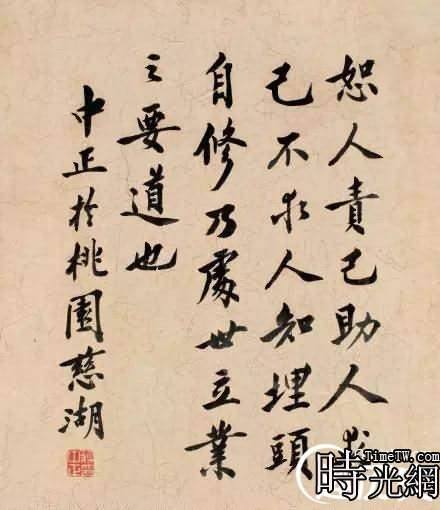 恕人責己助人求
己不求人知埋頭
自修乃處世立業
之要道也
中正於桃園慈湖
TimeTW.com
時光網